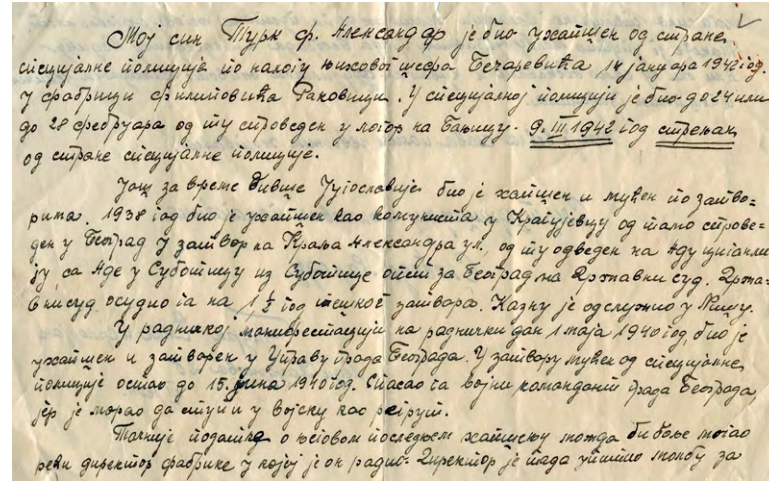 Мој син Турк Ф. Александар је био ухапшен од стране
специјалне полиције по налогу њиховог шефа Бечаревића 14 јануара 1942 год.
у фабрици Филиповића Раковици. У специјалној полицији је био до 24 или
до 28 фебруара од ту спроведен у логор на Бањицу. 9. III 1942 год стрељан
од стране специјалне полиције.
Још за време бивше Југославије био је хапшен и мучен по затво=
рима. 1938 год био је ухапшен као комуниста у Крагујевцу од тамо спрове=
ден у Београд у затвор на Краља Александра ул. од ту одведен на Аду циганли
ју, са Аде у Суботицу из Суботице опет за Београд на Државни суд. Држа=
вни суд осудио га на 1½ год тешког затвора. Казну је одслужио у Нишу.
У радничкој манифестацији на раднички дан 1 маја 1940 год. био је
ухапшен и затворен у Управу града Београда. У затвору мучен од специјалне
полиције остао до 15. јуна 1940 год. Спасао га војни командант града Београда,
јер је морао да ступи у војску као регрут.
Тачније податке о његовом последњем хапшењу можда би боље могао
рећи директор фабрике у којој је он радио. Директор је тада упутио молбу за